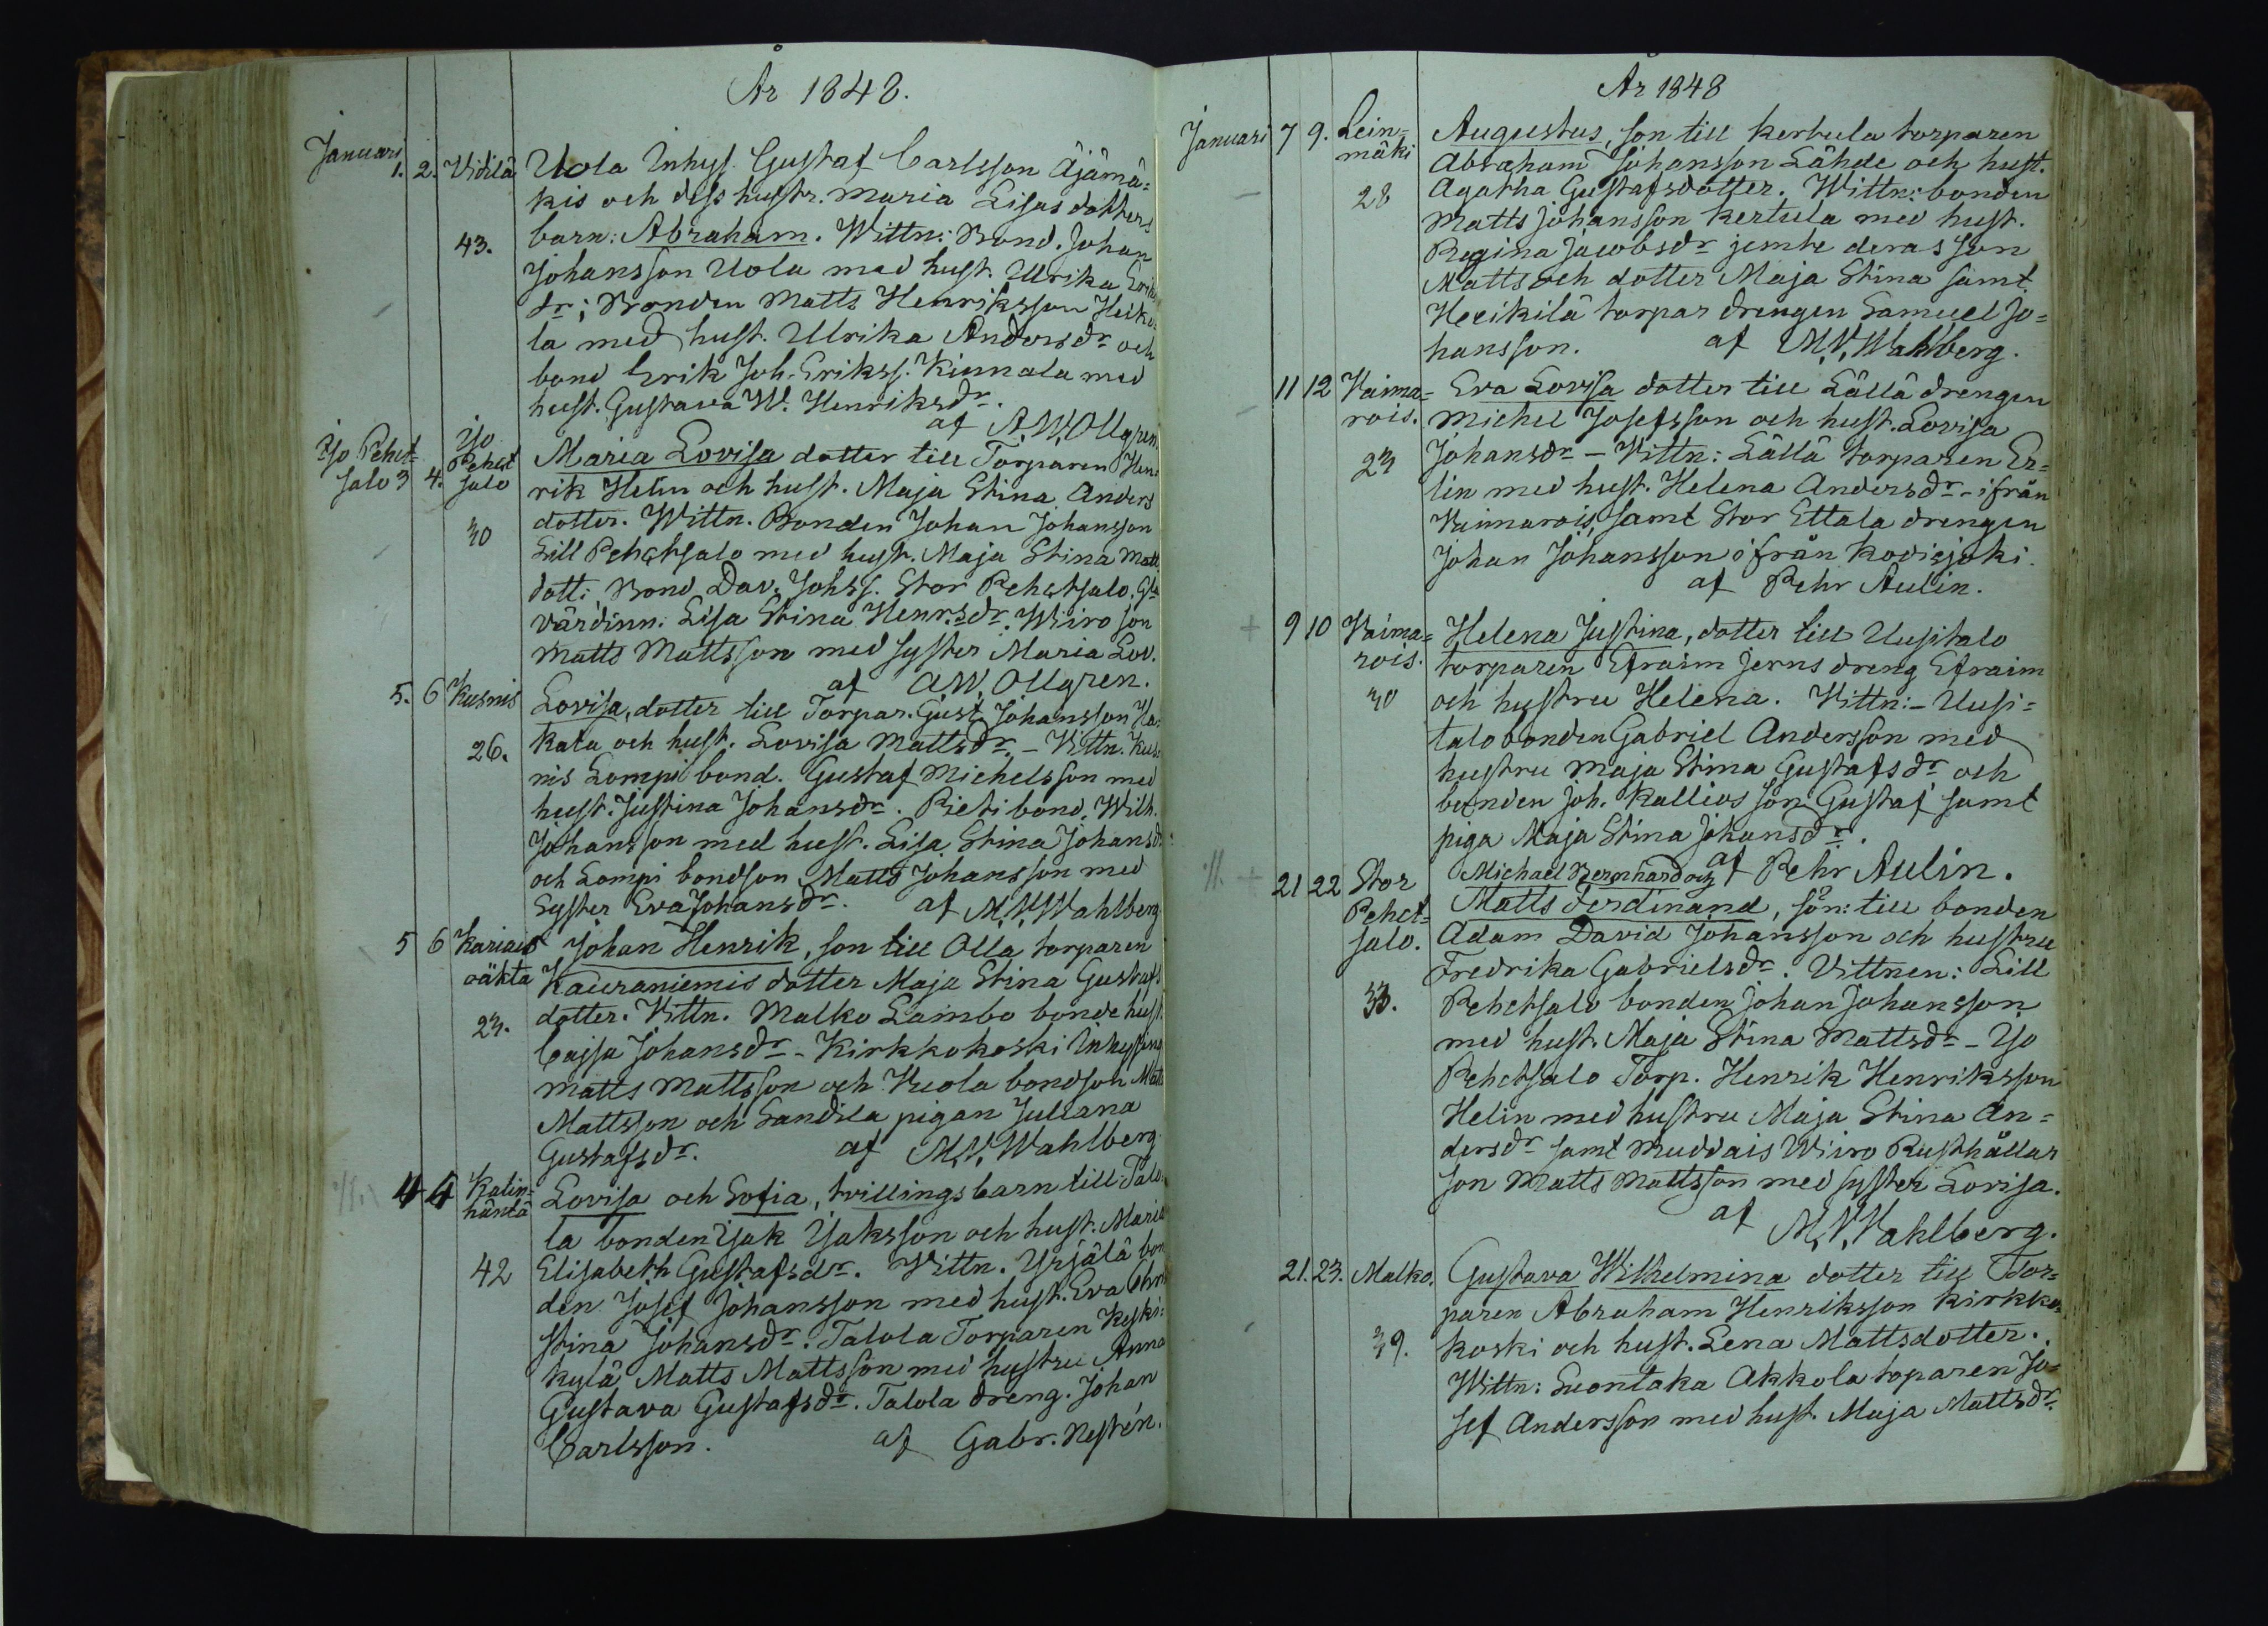 År 1848.
Januari
1. 2. Vidilä Uola Inhys. Gustaf Carlsson Äjämä-
kis och dess hustr. Maria Lisas dotters
43. barn: Abraham. Wittn: Bond. Johan
Johansson Uola med hust. Ulrika Eriks
dr; Bonden Matts Henriksson Heiko-
la med hust. Ulrika Andersdr och
bond Erik Joh. Erikss. Kinnala med
hust. Gustava W. Henriksdr.
af A.W. Ollgren
Yso Pehet-
salo 3 4. Yso Pehet salo Maria Lovisa dotter till Torparen Hen-
rik Helin och hust. Maja Stina Anders
30 dotter. Wittn. Bonden Johan Johansson
Lill Pehetsalo med hust. Maja Stina Matts
dott; Bond Dav. Johss. Stor Pehetsalo. Gl.
värdinn: Lisa Stina Henrsdr. Wiiro son
Matts Mattsson med syster Maria Lov.
af A.W. Ollgren.
5. 6 Kusnis Lovisa, dotter till Torpar. Gust Johansson Ha-
26. kata och hust. Lovisa Mattsdr. - Vittn. Kus-
nis Lompi bond. Gustaf Michelsson med
hust. Justina Johansdr. Pieti bond. Wilh.
Johansson med hust. Lisa Stina Johansdr
och Lompi bondson Matts Johansson med
Syster Eva Johansdr. af M.V. Wahlberg
5 6 Johan Henrik, son till Olla torparen
Kauraniemis dotter Maja Stina Gustafs
23. dotter. Vittn. Malko Laimbo bonde hust.
Cajsa Johansdr - Kirkkokoski Inhysing
Matts Mattsson och Kuola bondson Matts
Mattsson och Sandila pigan Juliana
Gustafsdr. af M.V. Wahlberg
4 6 Katin-
häntä Lovisa och Sofia, tvillingsbarn till Talo-
la bonden Isak Isaksson och hust. Maria
42 Elisabeth Gustafsdr. Vittn. Yrjälä bon
den Josef Johansson med hust. Eva Chri
stina Johansdr. Talola Torparen Keski-
kylä Matts Mattsson med hustru Anna
Gustava Gustafsdr. Talola dreng. Johan
Carlsson. af Gabr. Nestén.
År 1848
Januari 7 9. Lein-
mäki Augustus, son till Kertula torparen
Abraham Johansson Lähde och hust.
28 Agatha Gustafsdotter. Wittn: bonden
Matts Johansson Kertula med hust.
Regina Jacobsdr jemte deras son
Matts och dotter Maja Stina samt
Heikilä torpar drengen Samuel Jo-
hansson. af M.V. Wahlberg.
11 12 Vaima-
rois. Eva Lovisa dotter till Lällä drengen
Michel Josefsson och hust. Lovisa
23 Johansdr - Vittn: Lällä torparen Er-
lin med hust. Helena Andersdr - ifrån
Vaimarois, samt Stor Ettala drengen
Johan Johansson ifrån Kovisjoki.
af Pehr Aulin.
+ 9 10 Vaima-
rois. Helena Justina, dotter till Uusitalo
torparen Efraim Jerns dreng Efraim
30 och hustru Helena. Vittn: - Uusi-
talo bonden Gabriel Andersson med
hustru Maja Stina Gustafsdr och
bonden Joh. Kallios son Gustaf samt
piga Maja Stina Johansdr.
af Pehr Aulin.
+ 21 22 Stor
Pehet-
salo. Michael Bernhard och
Matts Ferdinand, sön: till bonden
Adam David Johansson och hustru
Fredrika Gabrielsdr. Vittnen: Lill
33. Pehetsalo bonden Johan Johansson
med hust. Maja Stina Mattsdr - Yso
Pehetsalo Torp. Henrik Henriksson
Helin med hustru Maja Stina An-
dersdr samt Muddais Wiiro Rusthållar
son Matts Mattsson med syster Lovisa.
af M.V. Wahlberg.
21. 23. Malko. Gustava Wilhelmina dotter till Tor-
paren Abraham Henriksson Kirkko-
39. koski och hust. Lena Mattsdotter.
Wittn: Suontaka Akkola toparen Jo-
sef Andersson med hust. Maja Mattsdr.